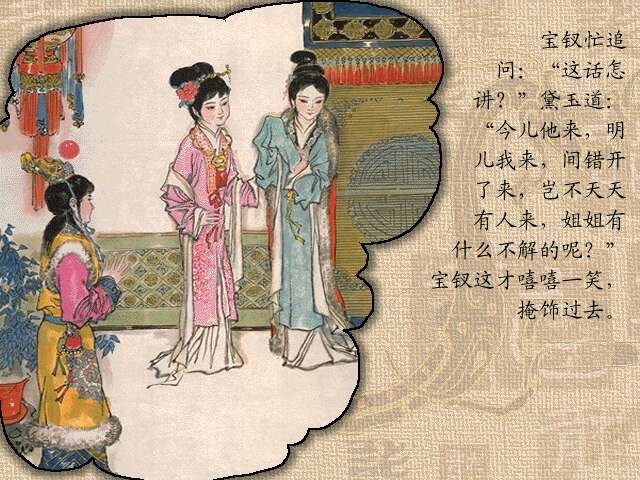 宝钗忙追
问：“这话怎
讲？”黛玉道：
“今儿他来，明
儿我来，间错开
了来，岂不天天
有人来，姐姐有
什么不解的呢？”
宝钗这才嘻嘻一笑，
掩饰过去。